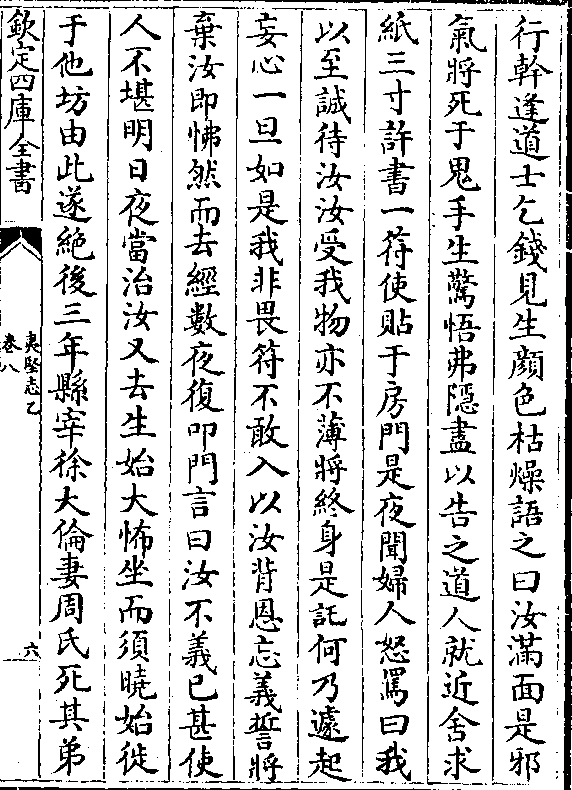 行幹逢道士乞錢見生顔色枯燥語之曰汝滿面是邪
氣將死于鬼手生驚悟弗隠盡以告之道人就近舍求
紙三寸許書一符使貼于房門是夜聞婦人怒罵曰我
以至誠待汝汝受我物亦不薄將終身是託何乃遽起
妄心一旦如是我非畏符不敢入以汝背恩忘義誓將
棄汝即怫然而去經數夜復叩門言曰汝不義已甚使
人不堪明日夜當治汝又去生始大怖坐而須曉始徙
于他坊由此遂絶後三年縣宰徐大倫妻周氏死其弟
欽定四庫全書
夷堅志乙
卷八
六